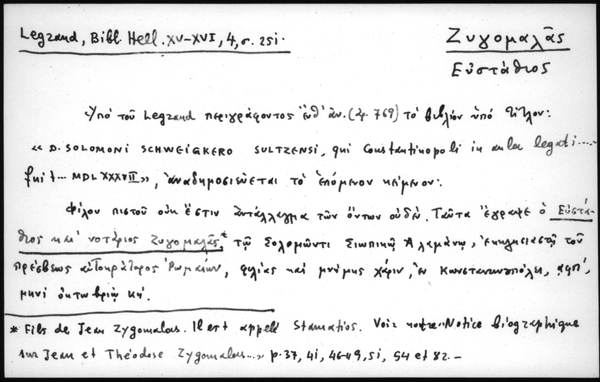 Legrand, Bibl. Hell. XV-XVI, 4, σ. 251.
Ζυγομαλᾶς
Εὐστάθιος
Ὑπὸ τοῦ Legrand περιγράφοντος ἐνθ' ἀν. (ἀρ. 769) τὸ βιβλίον ὑπὸ τίτλον:
« D. SOLOMONI SCHWEIGKERO SULTZENSI, qui Constantinopoli in aula legati.....
fuit... MDLXXXVII», ἀναδημοσιεύεται τὸ ἑπόμενον κείμενον:
Φίλου πιστοῦ οὐκ ἔστιν ἀντάλλαγμα τῶν ὄντων οὐδέν. Ταῦτα ἔγραψε ὁ Εὐστά-
θιος καὶ νοτάριος Ζυγομαλᾶς,* τῷ Σολομῶντι Σιωπικῇ Ἀλαμάνῳ, ἐκκλησιαστῇ τοῦ
πρέσβεως αὐτοκράτορος Ῥωμαίων, φιλίας καὶ μνήμης χάριν, ἐν Κωνσταντινουπόλει, ,αφπ',
μηνὶ ὀκτωβρίῳ κή.
* Fils de Jean Zygomalas. Il est appelé Stamatios. Voir notre «Notice biographique
sur Jean et Théodose Zygomalas...» p. 37, 41, 46-49, 51, 54 et 82.-